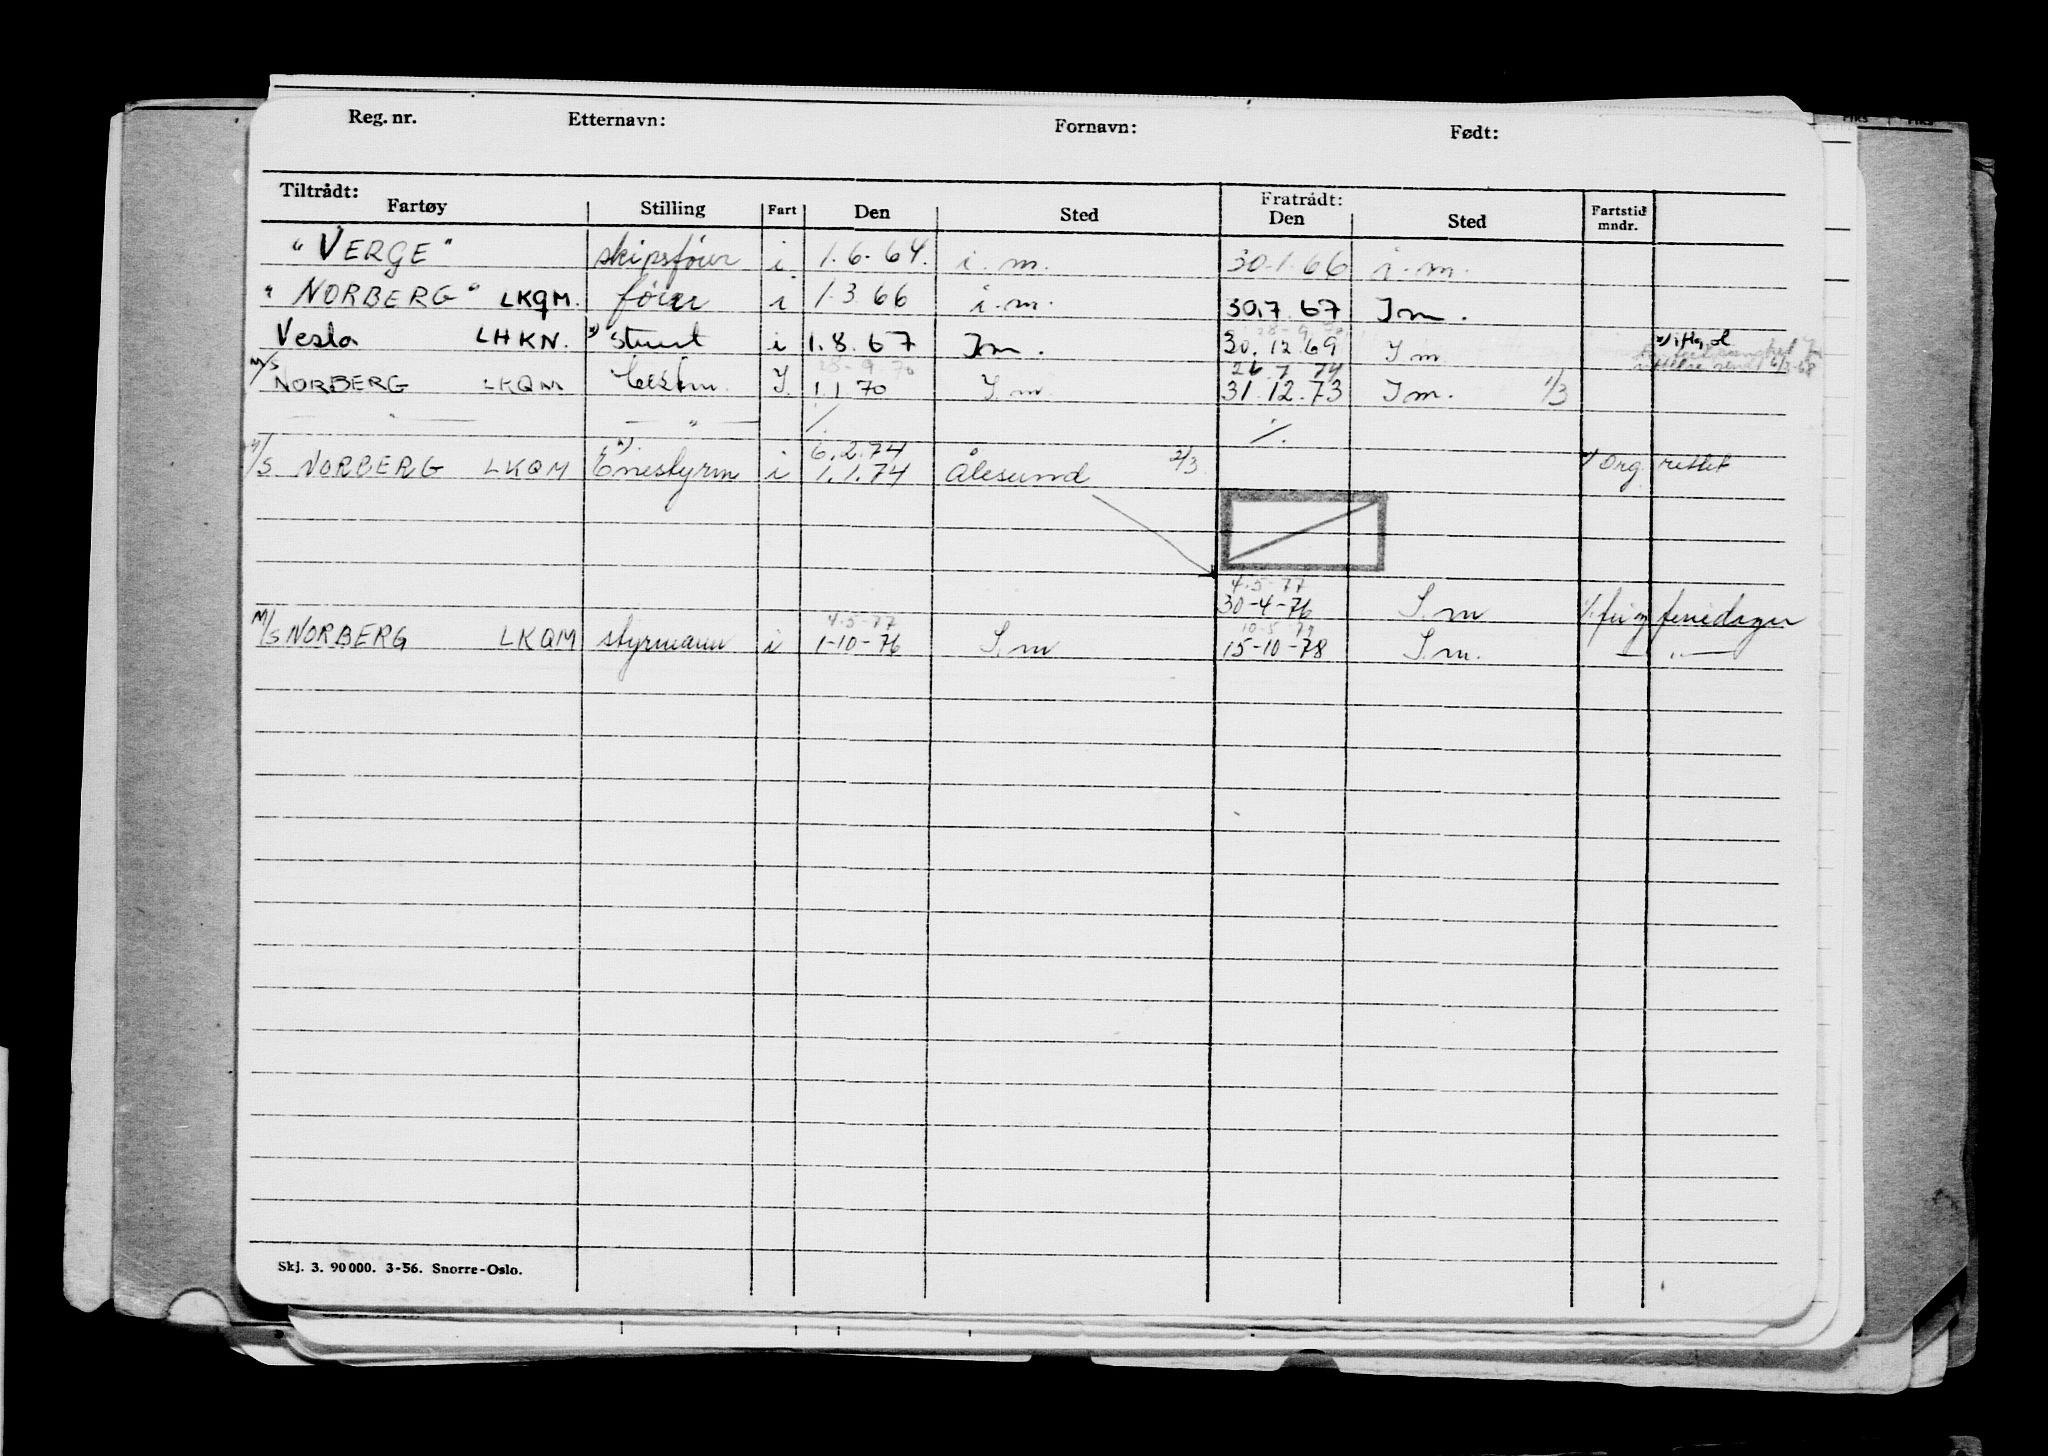 Reg. nr. Etternavn: Fornavn: Født:
Tiltrådt: Fratrådt:
Fartøy Stilling Fart Den Sted Den Sted Fartstid mndr.
"VERGE" skipsfører i 1.6.64. i.m. 30.1.66 i.m.
"NORBERG" LKQM. fører i 1.3.66 i.m. 30.7.67 Im.
28-9-70
Vesla LHKN. x) stuert i 1.8.67 Im. 30.12.69 Im
28-9-70 26.7.74
M/S NORBERG LKQM bestm. I. 1.1.70 I.m. 31.12.73 Im. 1/3
— " — — " — /. /.
6.2.74
M/S NORBERG LKQM x) Enestyrm i 1.1.74 Ålesund 2/3 x) Org. rettet
4-5-77
30-4-76 I.m /. fri og feriedager
4-5-77 10-5-79
M/S NORBERG LKQM styrmann i 1-10-76 I.m 15-10-78 I.m. — " —
Skj. 3. 90000. 3-56. Snorre-Oslo.